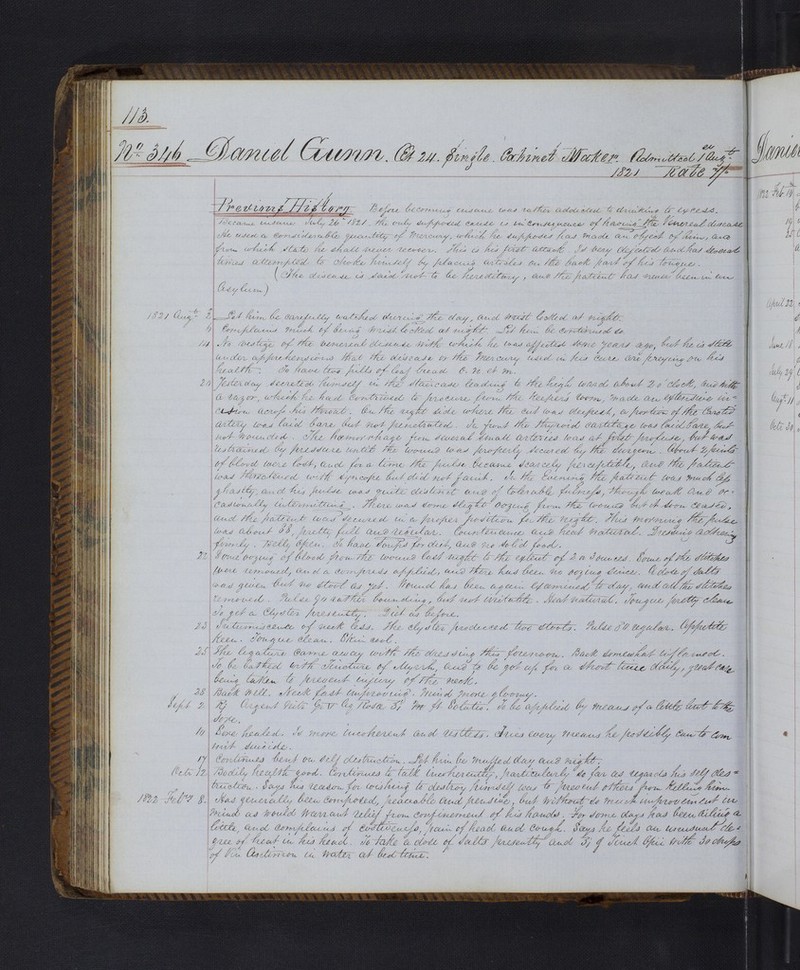 113.
No 346 Daniel Gunn. Æt 24. Single. Cabinet Maker. Admitted 1st Augt
1821 Rate
Previous History Before becoming insane was rather addicted to drinking to excess.
Became insane July 26th 1821. the only supposed cause is in consequence of having the venereal disease
he used a considerable quantity of mercury, which he supposes has made an object of him, and
from which state he shall never recover. This is his first attack. Is very dejected and has several
times attempted to choke himself by placing articles on the back part of his tongue.
(The disease is said not to be hereditary, and the patient has never been in an
Asylum)
1821 Augt 2. Let him be carefully watched during the day, and wrist locked at night.
6 Complains much of being wrist locked at night. Let him be continued so
14 No vestige of the venereal disease with which he was affected some years ago, but he is still
under apprehensions that the disease or the mercury used in his cure are preying on his
health. To have two pills of bread
20 Yesterday secreted himself in the Staircase leading to the high ward about 2 o'clock, and with
a razor, which he had contrived to procure from the Keeper's room, made an extensive in=
cision across his throat. On the right side where the cut was deepest, a portion of the Carotid
artery was laid bare but not penetrated. In front the thyroid cartilage was laid bare, but
not wounded. The hæmorrhage from several small arteries was at first profuse, but was
restrained by pressure until the wound was properly secured by the Surgeon. About 2 pints
of blood were lost, and for a time the pulse became scarcely perceptible, and the patient
was threatened with syncope but did not faint. In the Evening the patient was much less
ghastly, and his pulse was quite distinct and of tolerable fulness, though weak and oc=
casionally intermitting. There was some slight oozing from the wound but it soon ceased,
and the patient was secured in a proper position for the night. This morning the pulse
was about 88, pretty full and regular. Countenance and heat natural. Dressing adhering
firmly. Belly open. To have Soups for diet, and no solid food.
22 Some oozing of blood from the wound last night to the extent of 2 ounces. Some of the stitches
were removed, and a compress applied, and there has been no oozing since. A dose of Salts
was given but no stool as yet. Wound has been again examined to day, and all the stitches
removed. Pulse 90 rather bounding, but not irritable. Heat natural. Tongue pretty clean
To get a Clyster presently. Diet as before.
23 Intumescence of neck less. The clyster produced two stools. Pulse 80 regular. Appetite
keen. Tongue clean. Skin cool.
25 The ligature came away with the dressing this forenoon. Back somewhat inflamed.
To be bathed with Tincture of Myrrh, and to be got up for a short time daily, great care
being taken to prevent injury of the neck.
28 Back well. Neck fast improving. Mind more gloomy.
Sept 2 ft Solutio. To be applied by means of a little lint to the
sore.
11 Sore healed. Is more incoherent and restless. Tries every means he possibly can to com
mit suicide.
17 Continues bent on self destruction. Let him be muffed day and night.
Octr 12 Bodily health good. Continues to talk incoherently, particularly so far as regards his self des=
truction. Says his reason for wishing to destroy himself was to prevent others from killing him
1822 Feby 8. Has generally been composed, peaceable and pensive, but without so much improvement in
mind as would warrant relief from confinement of his hands. For some days has been ailing a
little, and complains of costiveness, pain of head and cough. Says he feels an unusual de=
gree of heat in his head. To take a dose of Salts presently and Tinct Opii with 30 drops
of Vin Antimon in water at bed time.
Daniel
1822 Feb 14
19
April 22
June 18
July 29
Augt 11
Octr 30